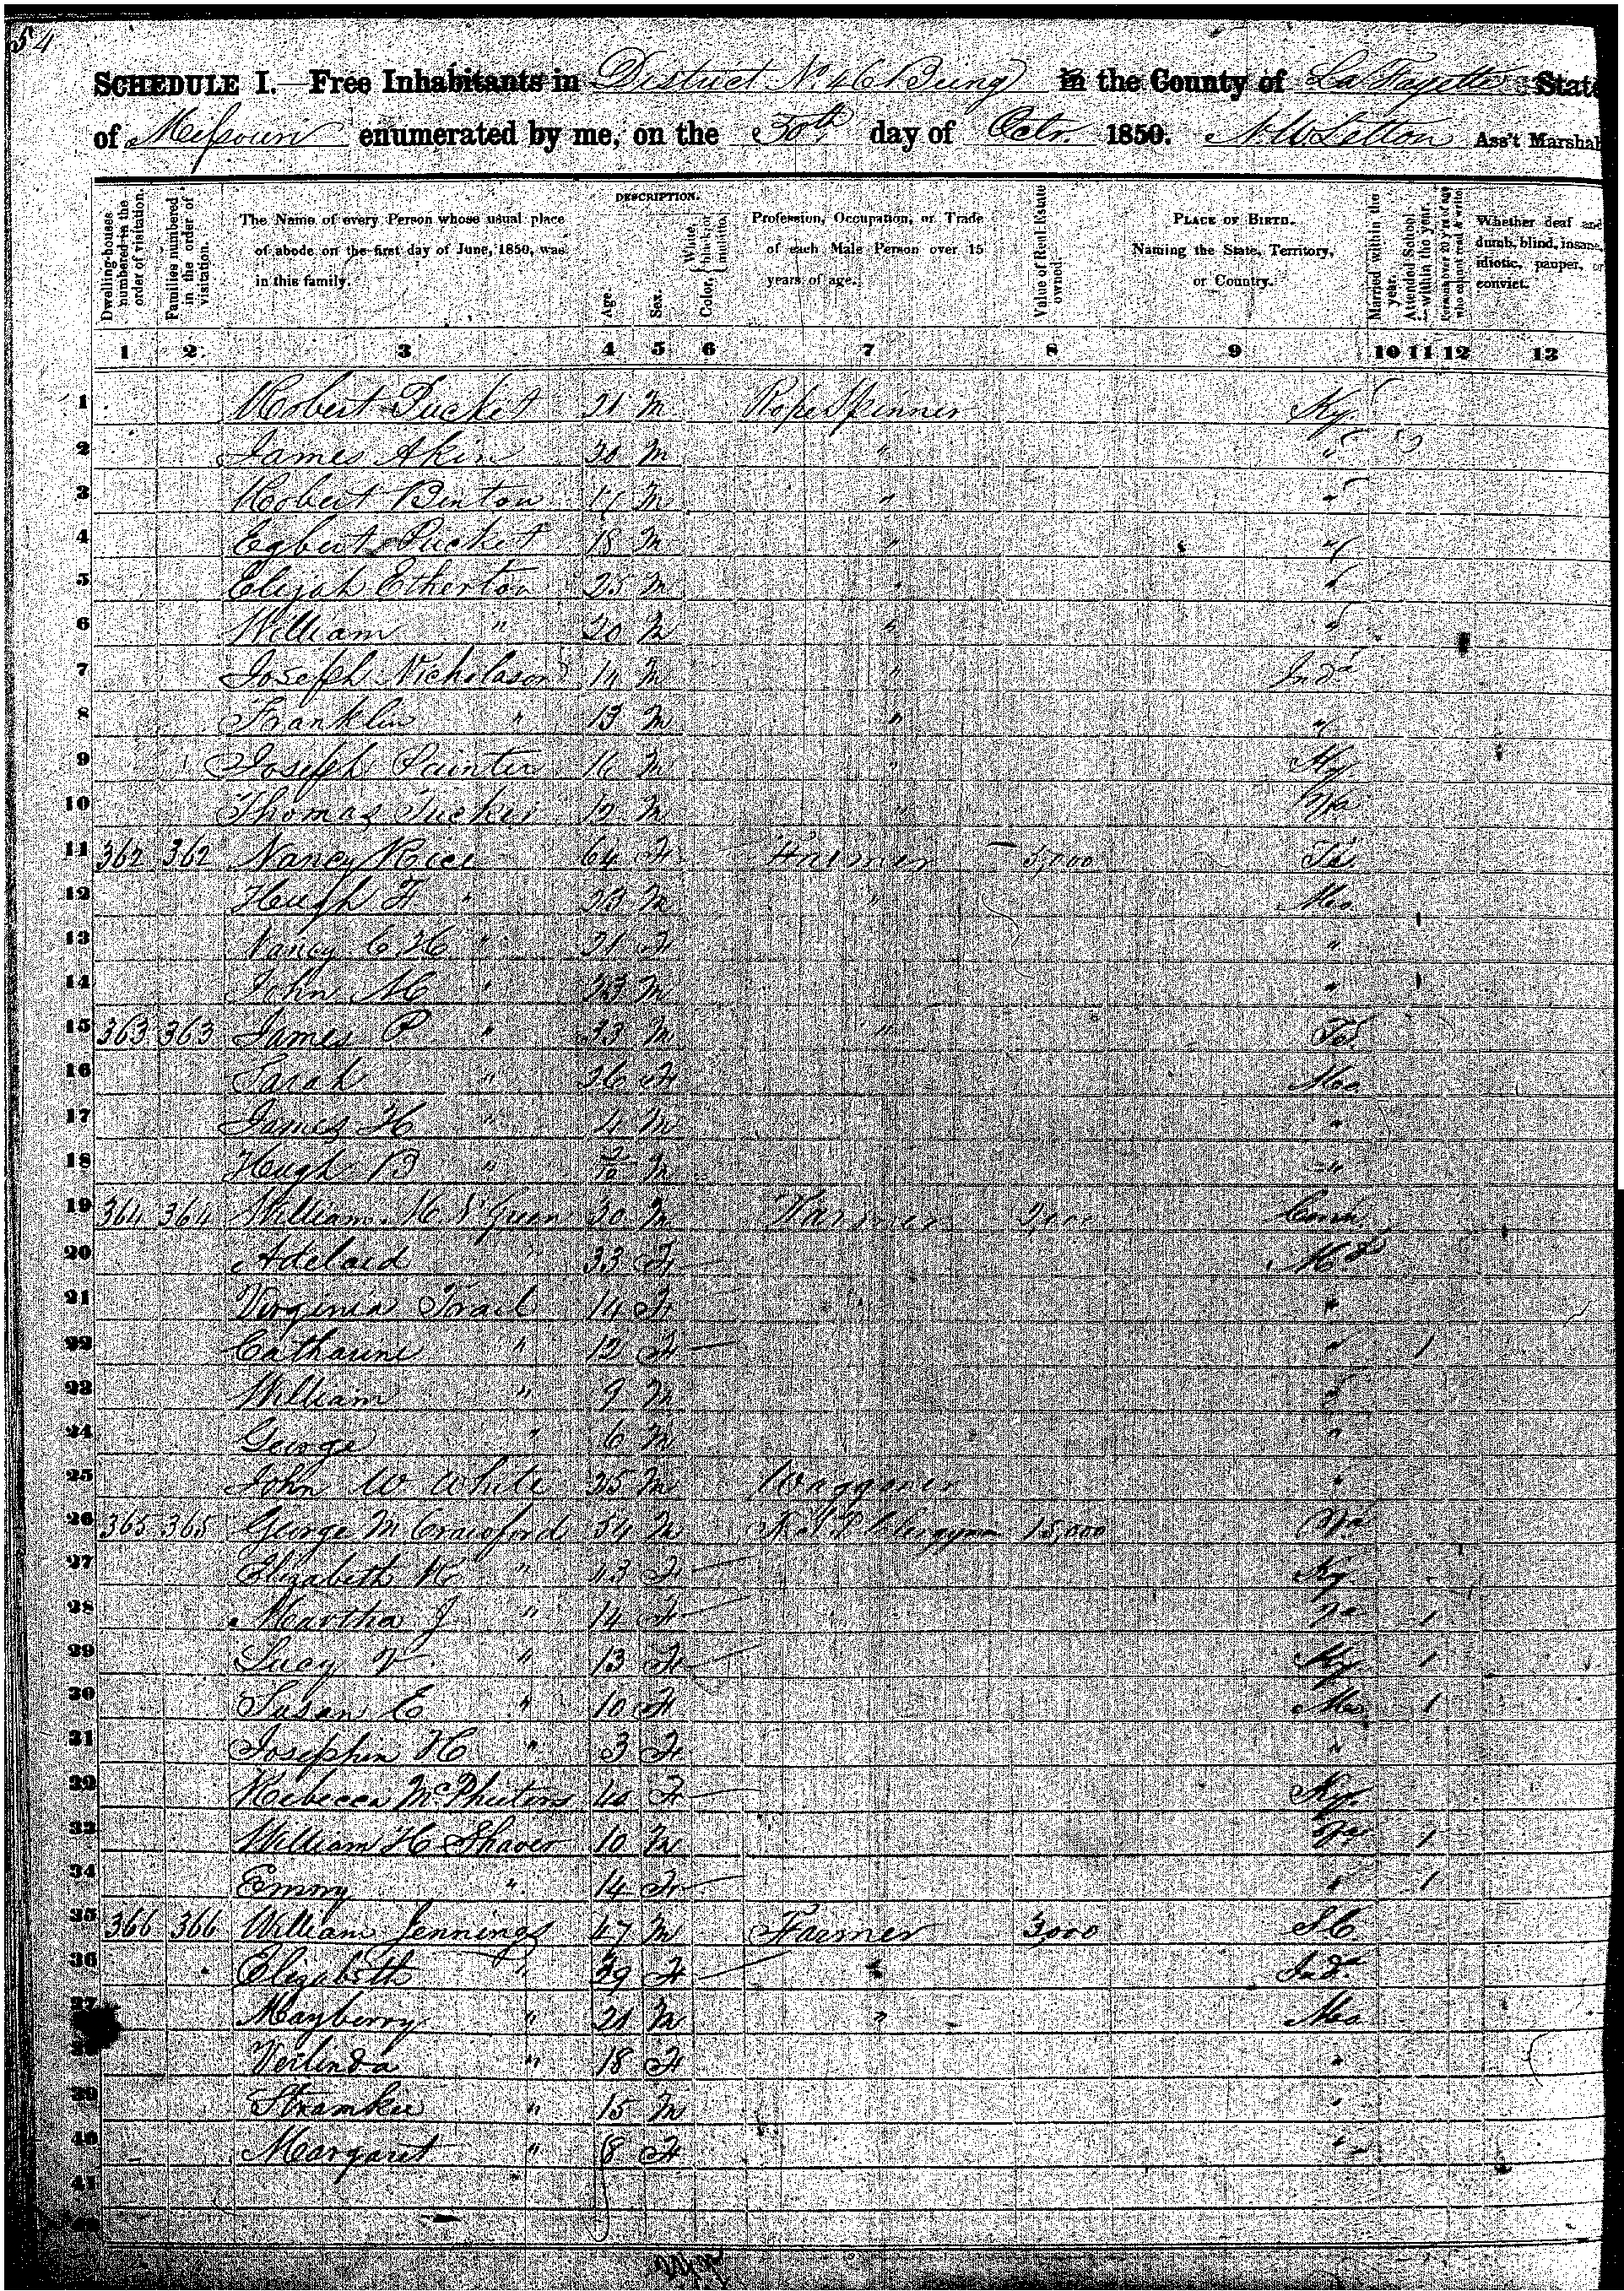 54
SCHEDULE I.—Free Inhabitants in District No 46 Being in the County of La Fayette State
of Missouri enumerated by me, on the 30th day of Octr. 1850. Ass't Marshal
Dwelling-houses numbered in the order of visitation.
Families numbered in the order of visitation.
The Name of every Person whose usual place of abode on the first day of June, 1850, was in this family.
DESCRIPTION.
Age.
Sex.
Color, White, black or mulatto.
Profession, Occupation, or Trade of each Male Person over 15 years of age.
Value of Real Estate owned.
PLACE OF BIRTH. Naming the State, Territory, or Country.
Married within the year.
Attended School within the year.
Persons over 20 y'rs of age who cannot read & write.
Whether deaf and dumb, blind, insane, idiotic, pauper, or convict.
1 2 3 4 5 6 7 8 9 10 11 12 13
1 Robert Pucket 21 M Rope Spinner Ky.
2 James Akin 20 M " "
3 Robert Benton 17 M " "
4 Egbert Pucket 18 M " "
5 Elijah Etherton 25 M " "
6 William " 20 M " "
7 Joseph Nicholason 14 M " Inda
8 Franklin " 13 M " "
9 Joseph Painter 16 M " Ky
10 Thomas 12 M " Va
11 362 362 Nancy Rice 64 F Farmer 5,000 Te.
12 Hugh F " 23 M " Mo
13 Nancy C H " 21 F "
14 John M " 23 M "
15 363 363 James P " 33 M " Te.
16 Sarah " 26 F Mo
17 James H " 4 M "
18 Hugh B " M "
19 364 364 William Green 30 M Farmer 2,000 Conn.
20 Adelaid " 33 F Md
21 Virginia Trail 14 F "
22 Catharine " 12 F " 1
23 William " 9 M "
24 George " 6 M "
25 John W White 25 M Waggoner "
26 365 365 George M Crawford 54 M 15,000 Va
27 Elizabeth " 43 F Ky.
28 Martha J " 14 F Va 1
29 Lucy V. " 13 F Ky 1
30 Susan E " 10 F Mo 1
31 Josephin H " 3 F "
32 Rebecca McPheeters 40 F Ky.
33 William H Shaver 10 M Va 1
34 Emory " 14 F " 1
35 366 366 William Jennings 47 M Farmer 3,000 S.C
36 Elizabeth " 39 F " Inda
37 Mayberry " 21 M " Mo
38 Verlinda " 18 F "
39 " 15 M "
40 Margaret " 8 F "
41
42